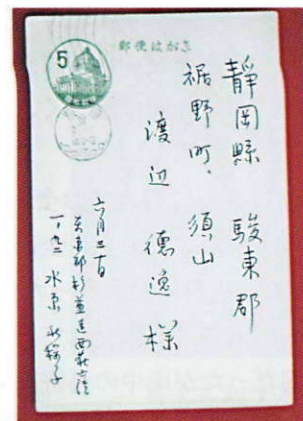 郵便はがき
5
静岡縣 駿東郡
裾野町、須山
渡辺 徳逸 様
六月三十日
東京都杉並区西荻
一ノ九二 水原 秋桜子